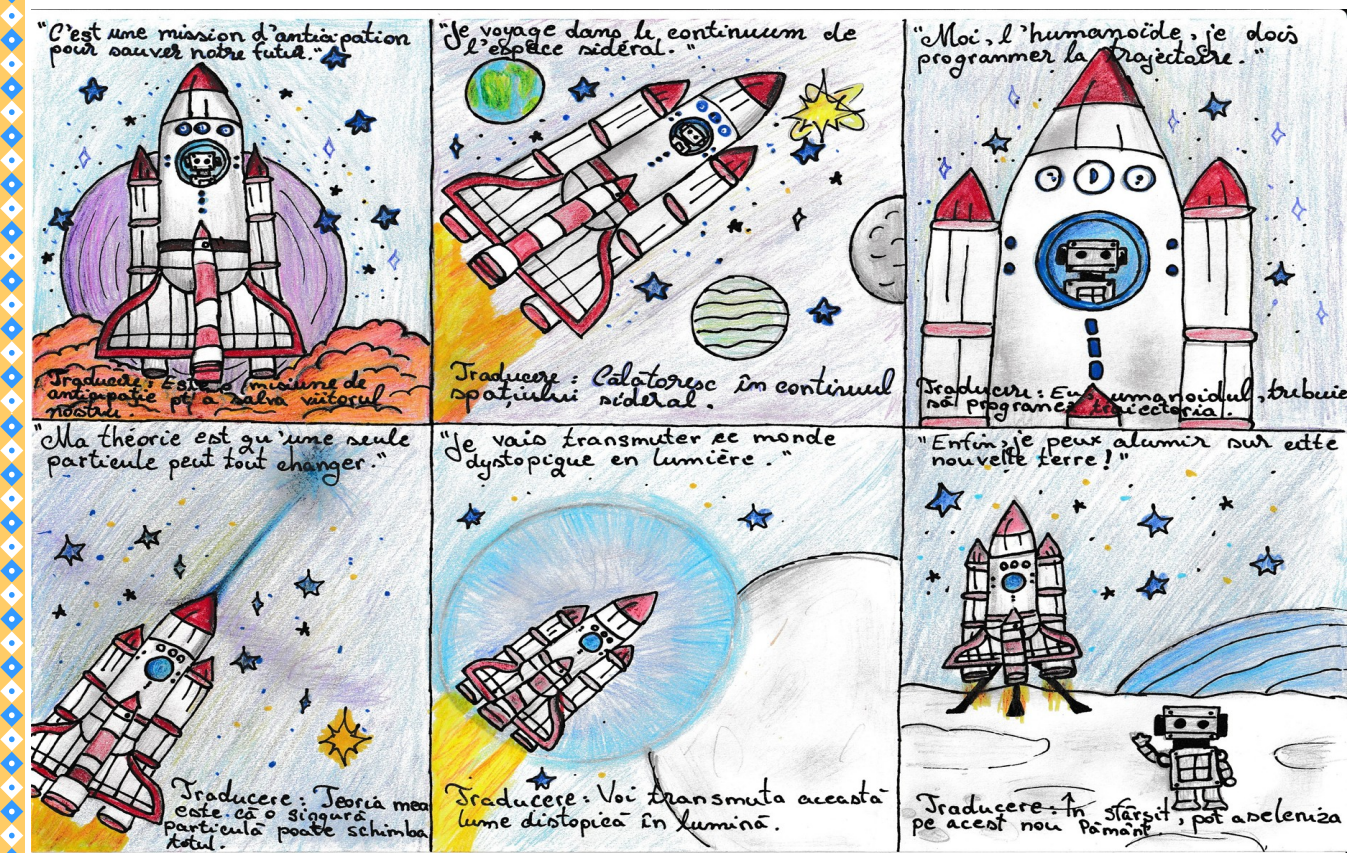 "C'est une mission d'anticipation
pour sauver notre futur."
Traducere: Este o misiune de
anticipație pt a salva viitorul
nostru.
"Je voyage dans le continuum de
l'espace sidéral."
Traducere: Călătoresc în continuul
spațiului sideral.
"Moi, l'humanoïde, je dois
programmer la trajectoire."
Traducere: Eu, umanoidul, trebuie
să programez traiectoria.
"Ma théorie est qu'une seule
particule peut tout changer."
Traducere: Teoria mea
este că o singură
particulă poate schimba
totul.
"Je vais transmuter ce monde
dystopique en lumière."
Traducere: Voi transmuta această
lume distopică în lumină.
"Enfin, je peux alunir sur cette
nouvelle terre!"
Traducere: În sfârșit, pot aseleniza
pe acest nou Pământ